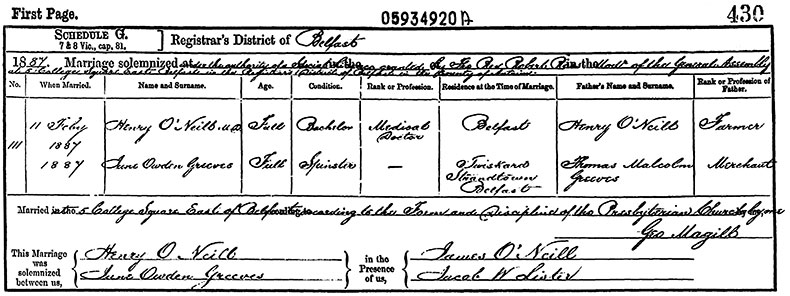 First Page. 05934920 A 430
SCHEDULE G. 7 & 8 Vic., cap. 81. Registrar's District of Belfast
1887. Marriage solemnized under the authority of a Special Licence granted by the Rev Robert in the of the General Assembly
at 5 College Square East, Belfast in the District of Belfast in the County of Antrim.
No. When Married. Name and Surname. Age. Condition. Rank or Profession. Residence at the Time of Marriage. Father's Name and Surname. Rank or Profession of Father.
111 11 Feby 1887 Henry O'Neill M.D. Full Bachelor Medical Doctor Belfast Henry O'Neill Farmer
1887 June Owden Greeves Full Spinster — Twiskard Strandtown Belfast Thomas Malcolm Greeves Merchant
Married in the 5 College Square East of Belfast according to the Form and Discipline of the Presbyterian Church by me
Geo Magill
This Marriage was solemnized between us, Henry O Neill in the Presence of us, James O'Neill
June Owden Greeves Jacob W Lister